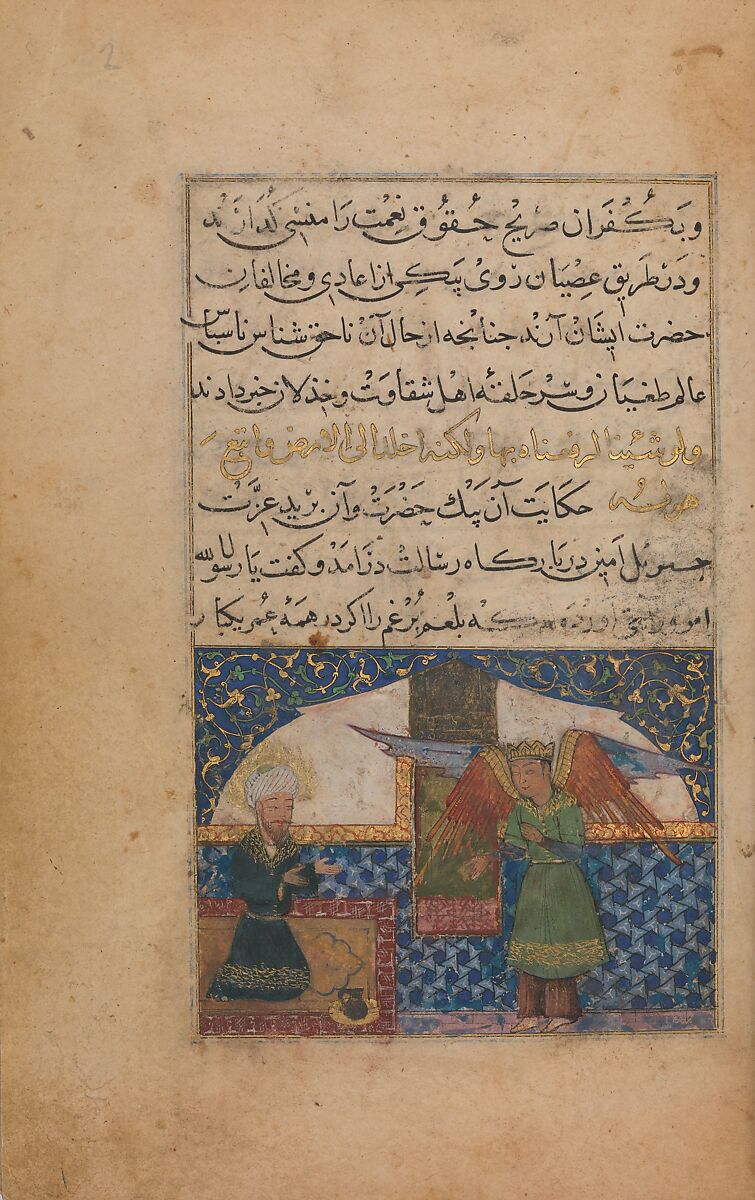 2
و بکُفران صریح حُقوُق نِعمْت رَا منسی کُذارَند
و دَر طریق عِصیَان روُی بیَکی از اعادِی و مخالفانِ
حضرت ایشانْ آرَند، جنانجه از حال آنْ ناحق شناس ناسباس
عالم طغیان و سَرْ حلقهٔ اهل شقاوَتْ و خذلان خبر دادند
ولو شئنا لرفعناه بها ولکنه اخلد الی الارض واتبع
هویه حکایت آن پیْک حَضْرَتْ و آن برید عزّتْ
جبریل امین در بارکاه رسَالتْ دَرْآمَدْ و کفت یا رسول الله
امر آورده که بلْعم بُرغم را اکر در همهٔ عُمر یکبار